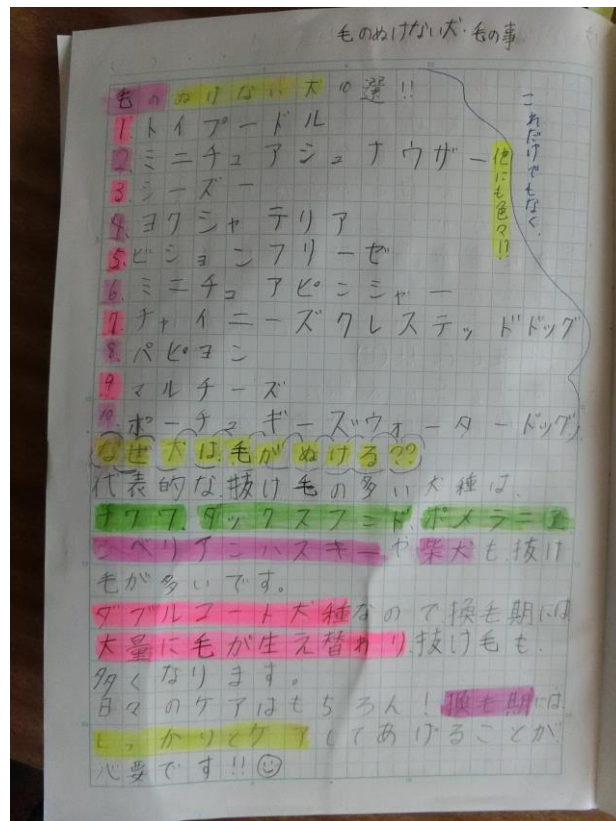 毛のぬけない犬・毛の事
毛のぬけない犬10選!!
1.トイプードル
2.ミニチュアシュナウザー
3.シーズー
4.ヨクシャテリア
5.ビションフリーゼ
6.ミニチュアピンシャー
7.チャイニーズクレステッドドッグ
8.パピヨン
9.マルチーズ
10.ポーチュギーズウォータードッグ
これだけでもなく、
他にも色々!?
なぜ犬は毛がぬける??
代表的な抜け毛の多い犬種は、
チワワ、ダックスフンド、ポメラニエ
シベリアンハスキーや柴犬も抜け
毛が多いです。
ダブルコート犬種なので換毛期には
大量に毛が生え替わり抜け毛も、
多くなります。
日々のケアはもちろん!換毛期には
しっかりとケアしてあげることが
心要です!!